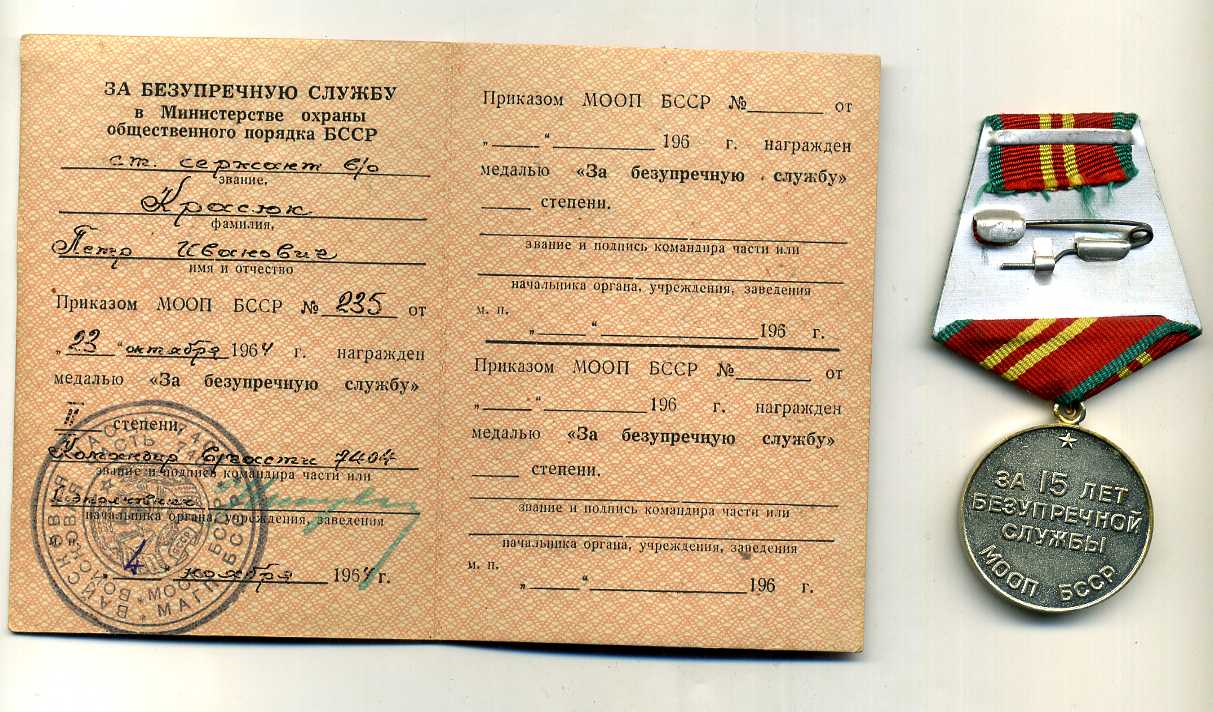 ЗА БЕЗУПРЕЧНУЮ СЛУЖБУ
в Министерстве охраны
общественного порядка БССР
ст. сержант в/с
звание,
Красюк
фамилия,
Петр Иванович
имя и отчество
Приказом МООП БССР № 235 от
„23“ октября 1964 г. награжден
медалью «За безупречную службу»
II степени.
Командир в/части 7404
звание и подпись командира части или
начальника органа, учреждения, заведения
4 ноября 1964 г.
Приказом МООП БССР №______ от
„____“__________ 196 г. награжден
медалью «За безупречную службу»
____ степени.
звание и подпись командира части или
начальника органа, учреждения, заведения
м. п.
„____“__________196 г.
Приказом МООП БССР №______ от
„____“__________196 г. награжден
медалью «За безупречную службу»
____ степени.
звание и подпись командира части или
начальника органа, учреждения, заведения
м. п.
„____“__________196 г.
ЗА 15 ЛЕТ
БЕЗУПРЕЧНОЙ
СЛУЖБЫ
МООП БССР